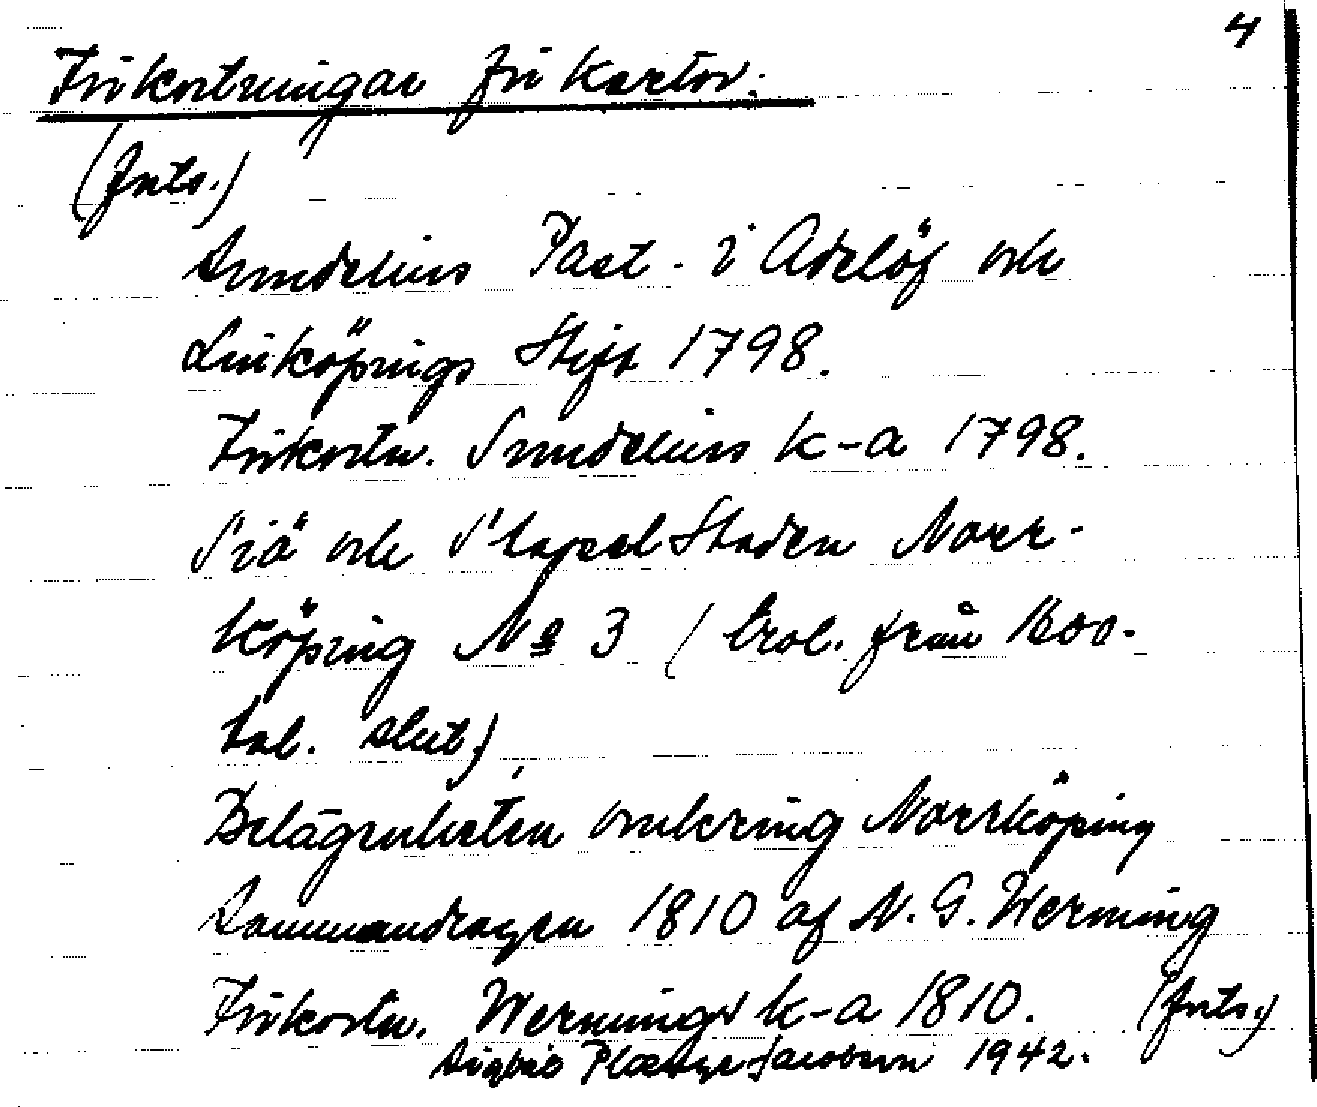 4
Förkortningar för kartor.
(Forts.)
Sundelius Past. i Adelöf och
Linköpings Stift 1798.
Förkortn. Sundelius k-a 1798.
Siö och StapelStaden Norr-
köping No 3 (trol. från 1800-
tal. slut)
Belägenheten omkring Norrköping
Sammandragen 1810 af N. G. Werming
Förkortn. Wermings k-a 1810. (Forts.)
1942.